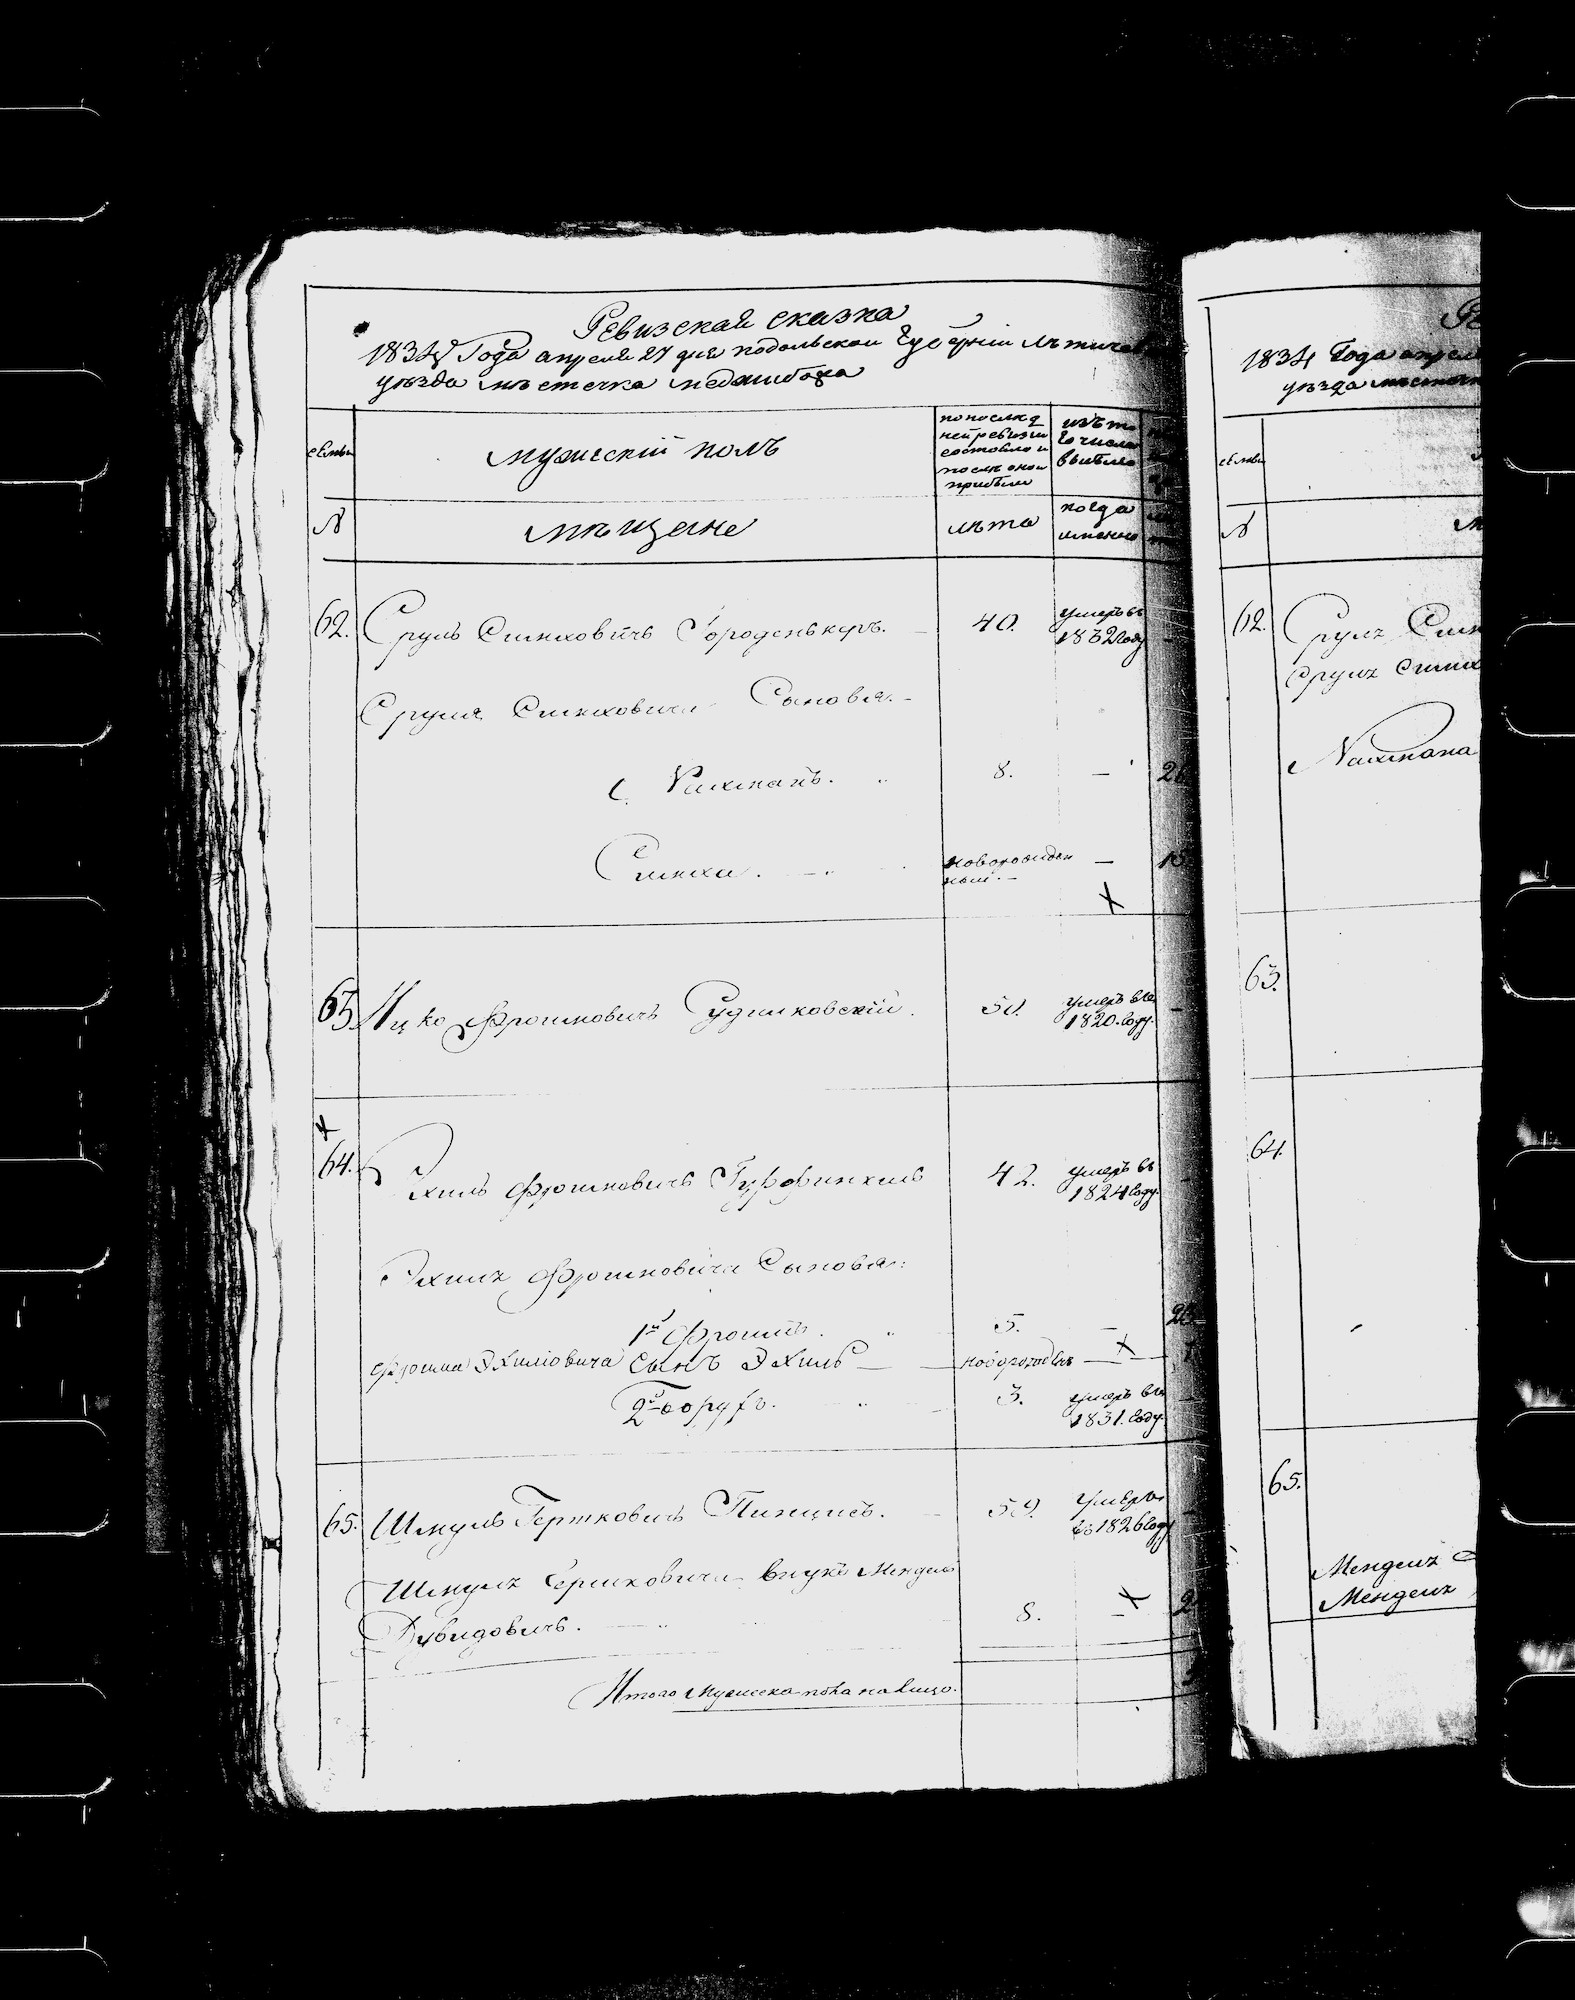 Ревизская сказка
1834 Года апреля 27 дня подольской Губернии Лѣтичев
уѣзда мѣстечка медживожа
семьи
мужескій полъ
по послѣд
ней ревизіи
состояло и
послѣ оной
прибыли
изъ то
го числа
выбыло
№
мѣщане
лѣта
когда
именно
62. Сруль Симховичь Городенькеръ. 40. умеръ въ
1832 Году
Сруля Симховича Сыновья.
Нахманъ. 8. — 2
Симха. новорожден
ный. — 1
X
63 Ицко Фроимовичь Судилковскій. 50. умеръ въ
1820. Году.
X
64. Эхиль Фроимовичь Гурфинкиль 42. умеръ въ
1824 Году.
Эхиля Фроимовича Сыновья:
1й Фроимъ. 5. — 2
Фроима Эхиліовича Сынъ Эхиль — новорожденъ — X — 1
2й Борухъ. 3. умеръ въ
1831. Году.
65. Шмуль Гершковичь Пинцисъ. 59. Умеръ
въ 1826 Году
Шмуля Гершковича внукъ Мендель
Дувидовичь. 8. — X 2
Итого Мужеска пола налицо.
1834 Года апрел
уѣзда мѣсточк
семьи
№
62. Сруля Сим
Сруля Симх
Нахмана
63.
64.
65.
Менделя
Менделя